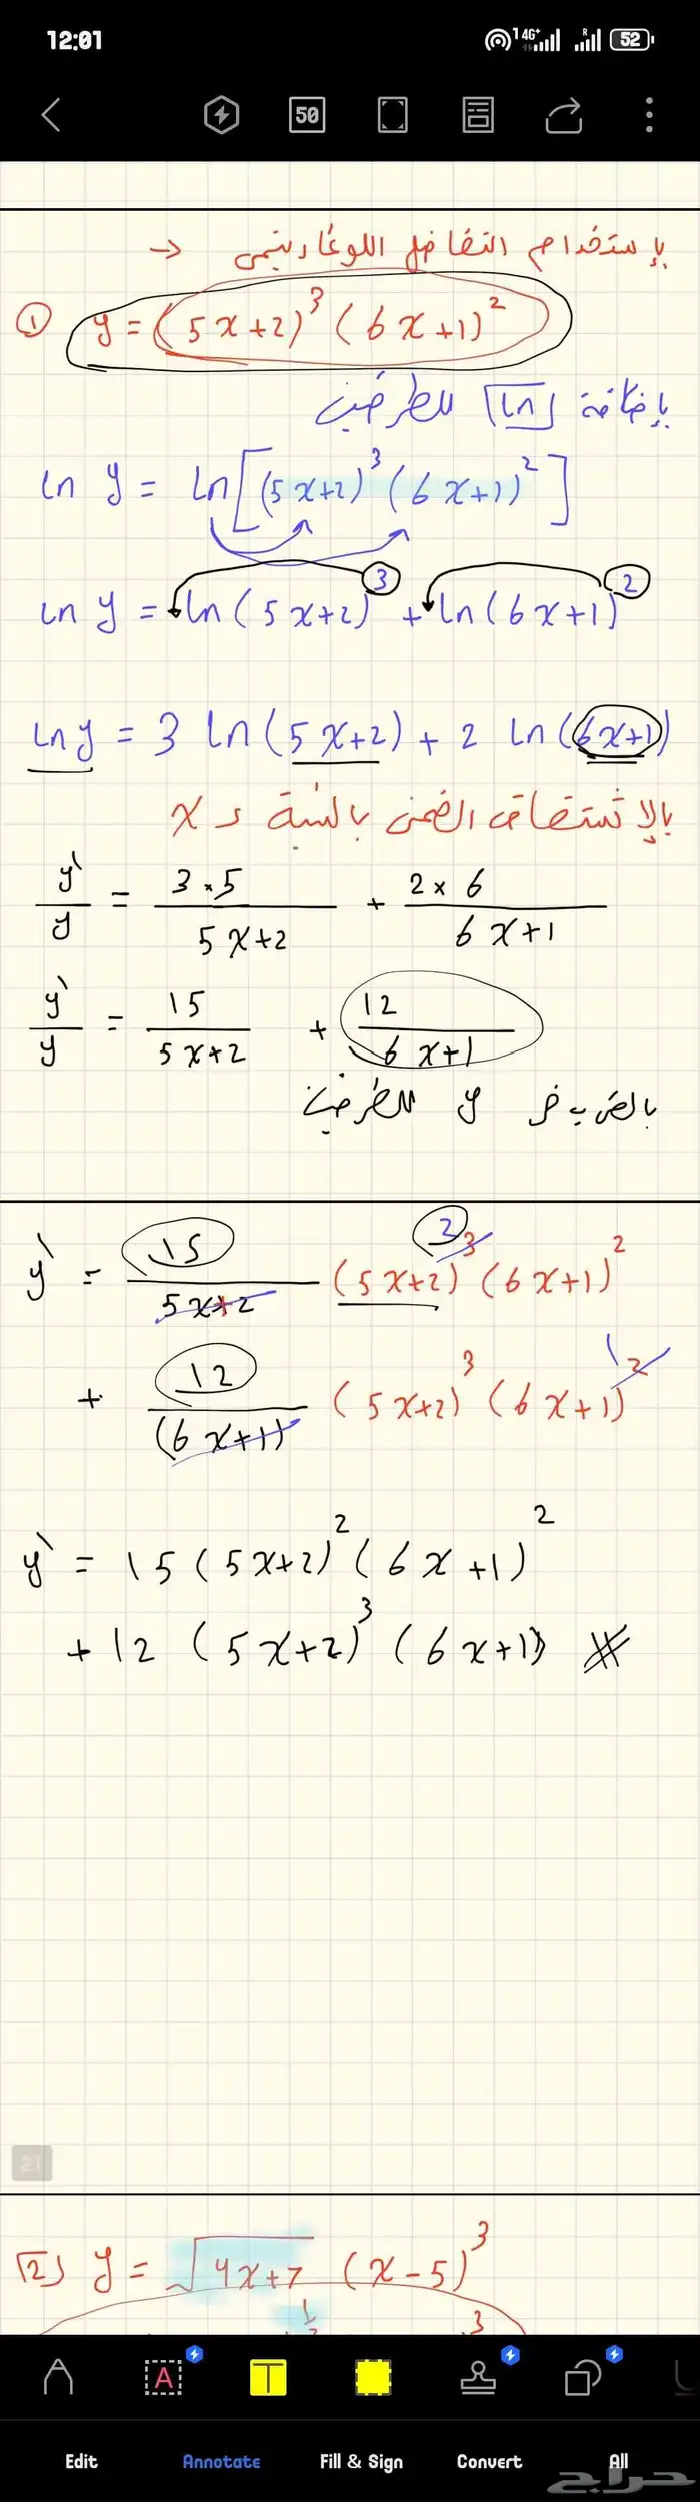 12:01
4G+ R 52
50
بإستخدام التفاضل اللوغاريتمي →
① y = (5x+2)³ (6x+1)²
بإضافة ln للطرفين
ln y = ln[(5x+2)³ (6x+1)²]
ln y = ln(5x+2)³ + ln(6x+1)²
ln y = 3 ln(5x+2) + 2 ln(6x+1)
بالإشتقاق الضمني بالنسبة لـ x
y`/y = 3×5/5x+2 + 2×6/6x+1
y`/y = 15/5x+2 + 12/6x+1
بالضرب في y للطرفين
y` = 15/5x+2 (5x+2)³ ² (6x+1)²
+ 12/(6x+1) (5x+2)³ (6x+1)² ¹
y` = 15(5x+2)² (6x+1)²
+12 (5x+2)³ (6x+1) #
21
[2] y = √4x+7 (x-5)³
Edit Annotate Fill & Sign Convert All
حراج